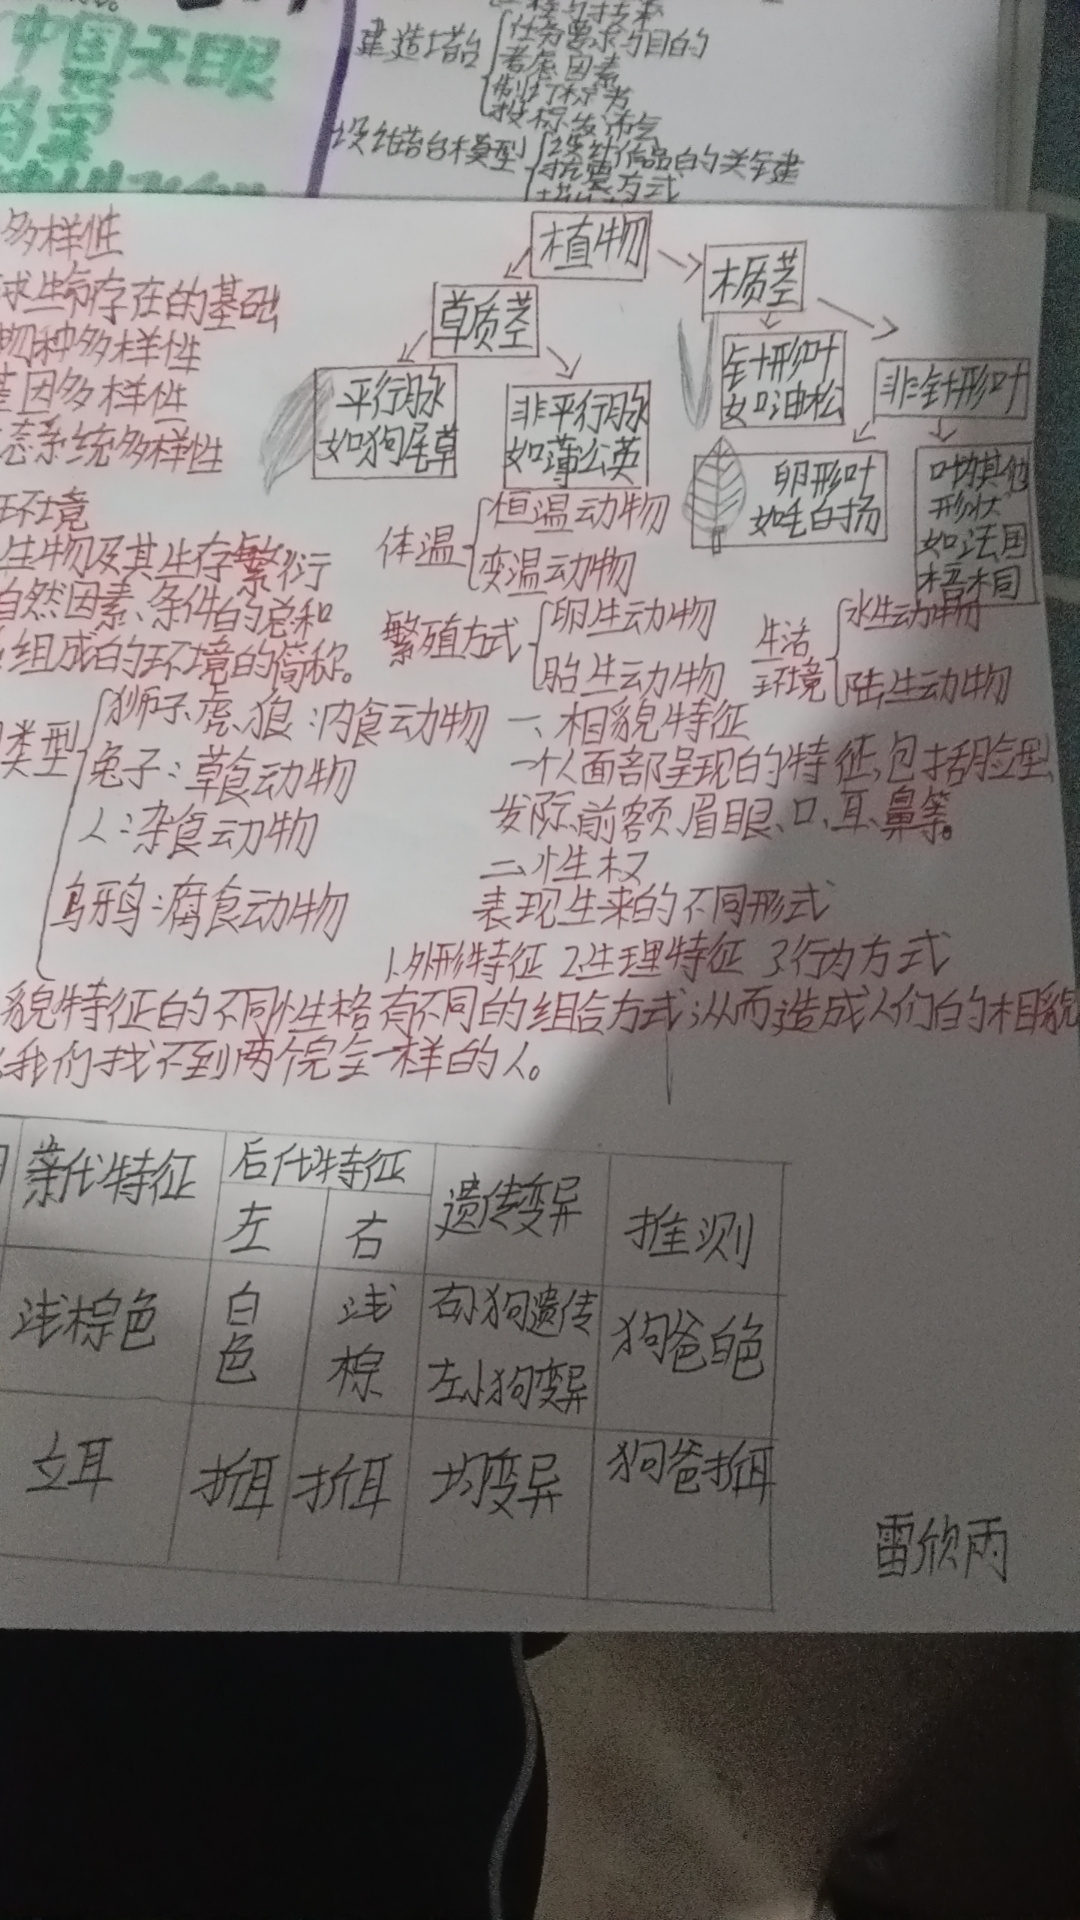 中国天眼
建造塔台
任务要求与目的
考虑因素
制订标书
投标发布会
设计塔台模型
抗震方式
多样性
求生命存在的基础
物种多样性
基因多样性
态系统多样性
环境
生物及其生存繁衍
自然因素、条件的总和
组成的环境的简称。
植物
草质茎
木质茎
平行脉
如狗尾草
非平行脉
如蒲公英
针形叶
如油松
非针形叶
卵形叶
如毛白扬
叶切其他
形状
如法国
梧桐
体温
恒温动物
变温动物
繁殖方式
卵生动物
胎生动物
生活
环境
水生动物
陆生动物
类型
狮子、虎、狼:肉食动物
兔子:草食动物
人:杂食动物
乌鸦:腐食动物
一、相貌特征
一个人面部呈现的特征,包括脸型、
发际、前额、眉眼、口、耳、鼻等。
二、性状
表现生来的不同形式
1.外形特征 2.生理特征 3.行为方式
貌特征的不同性格有不同的组合方式,从而造成人们的相貌
我们找不到两个完全一样的人。
亲代特征
后代特征
左
右
遗传变异
推测
浅棕色
白色
浅棕
右小狗遗传
左小狗变异
狗爸白色
立耳
折耳
折耳
均变异
狗爸折耳
雷欣雨